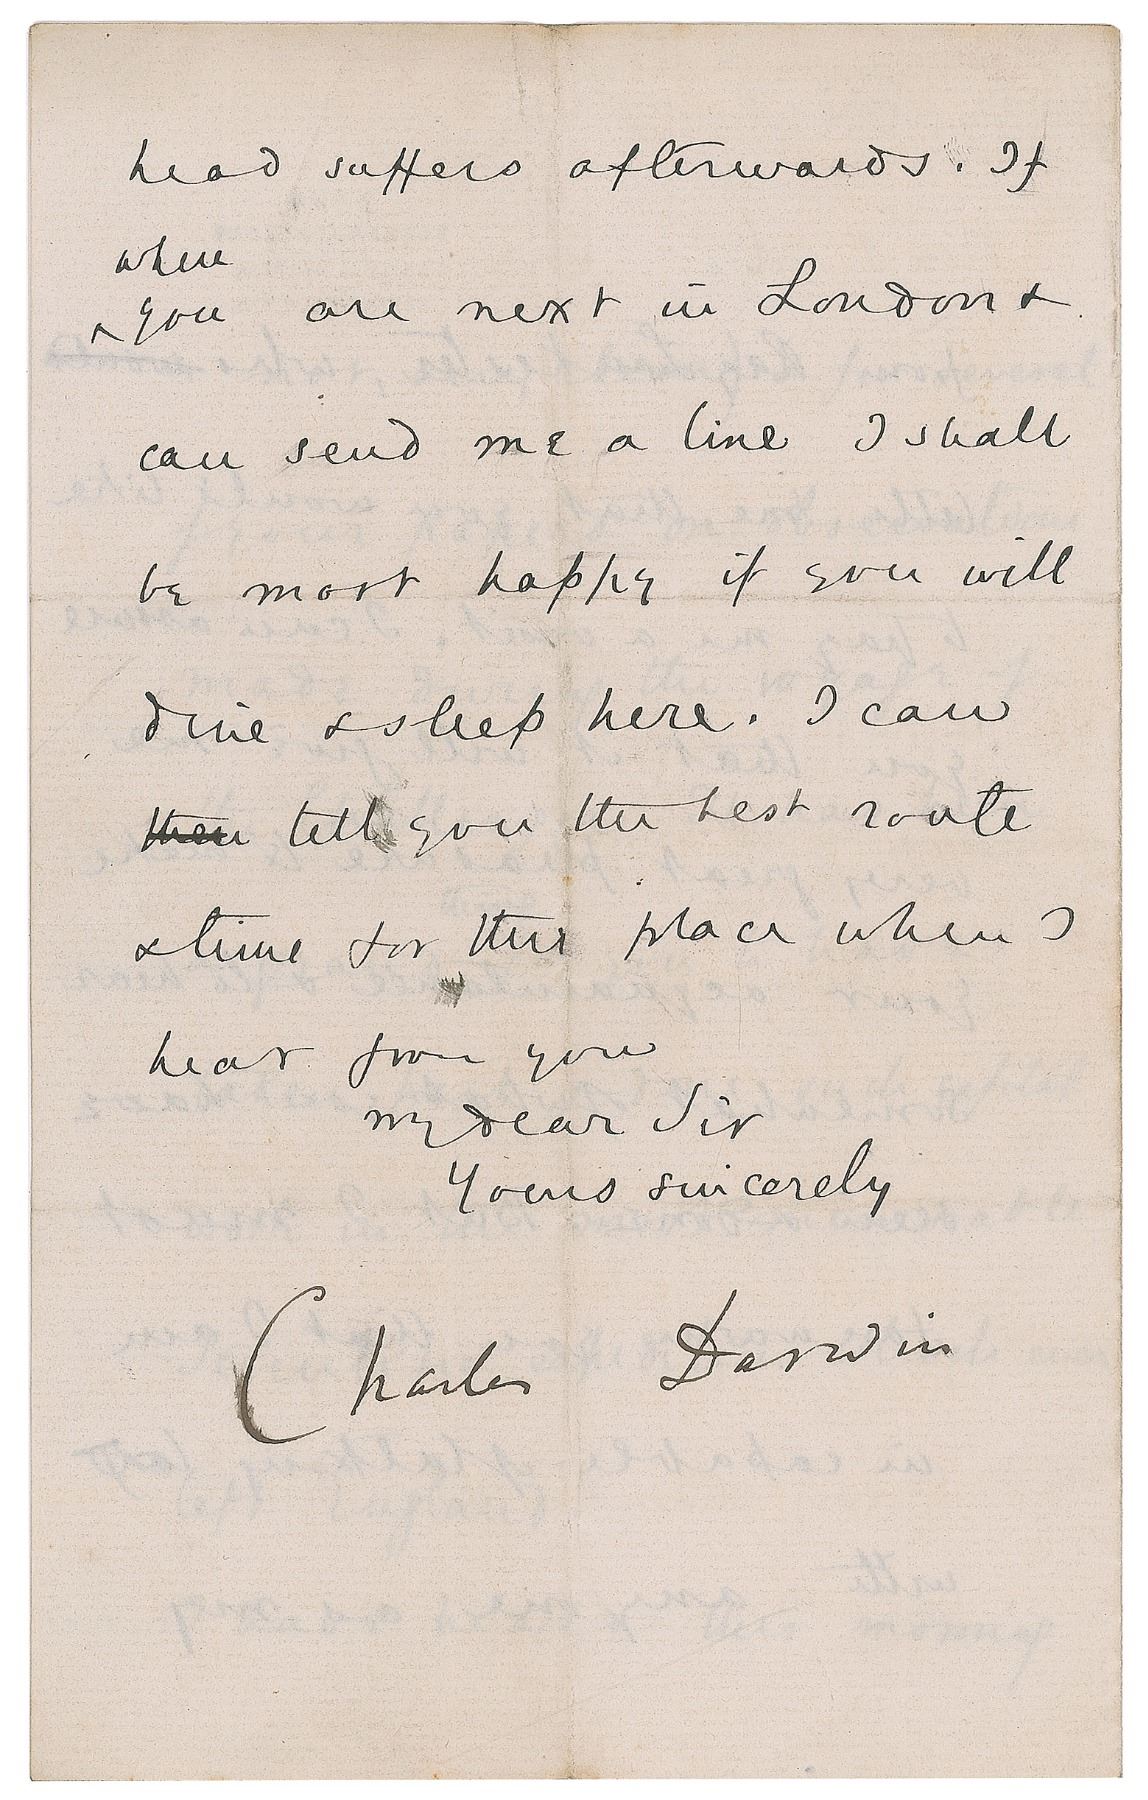 head suffers afterwards. If
when
you are next in London &
can send me a line I shall
be most happy if you will
dine & sleep here. I can
then tell you the best route
& time for this place when I
hear from you
my dear Sir
Yours sincerely
Charles Darwin